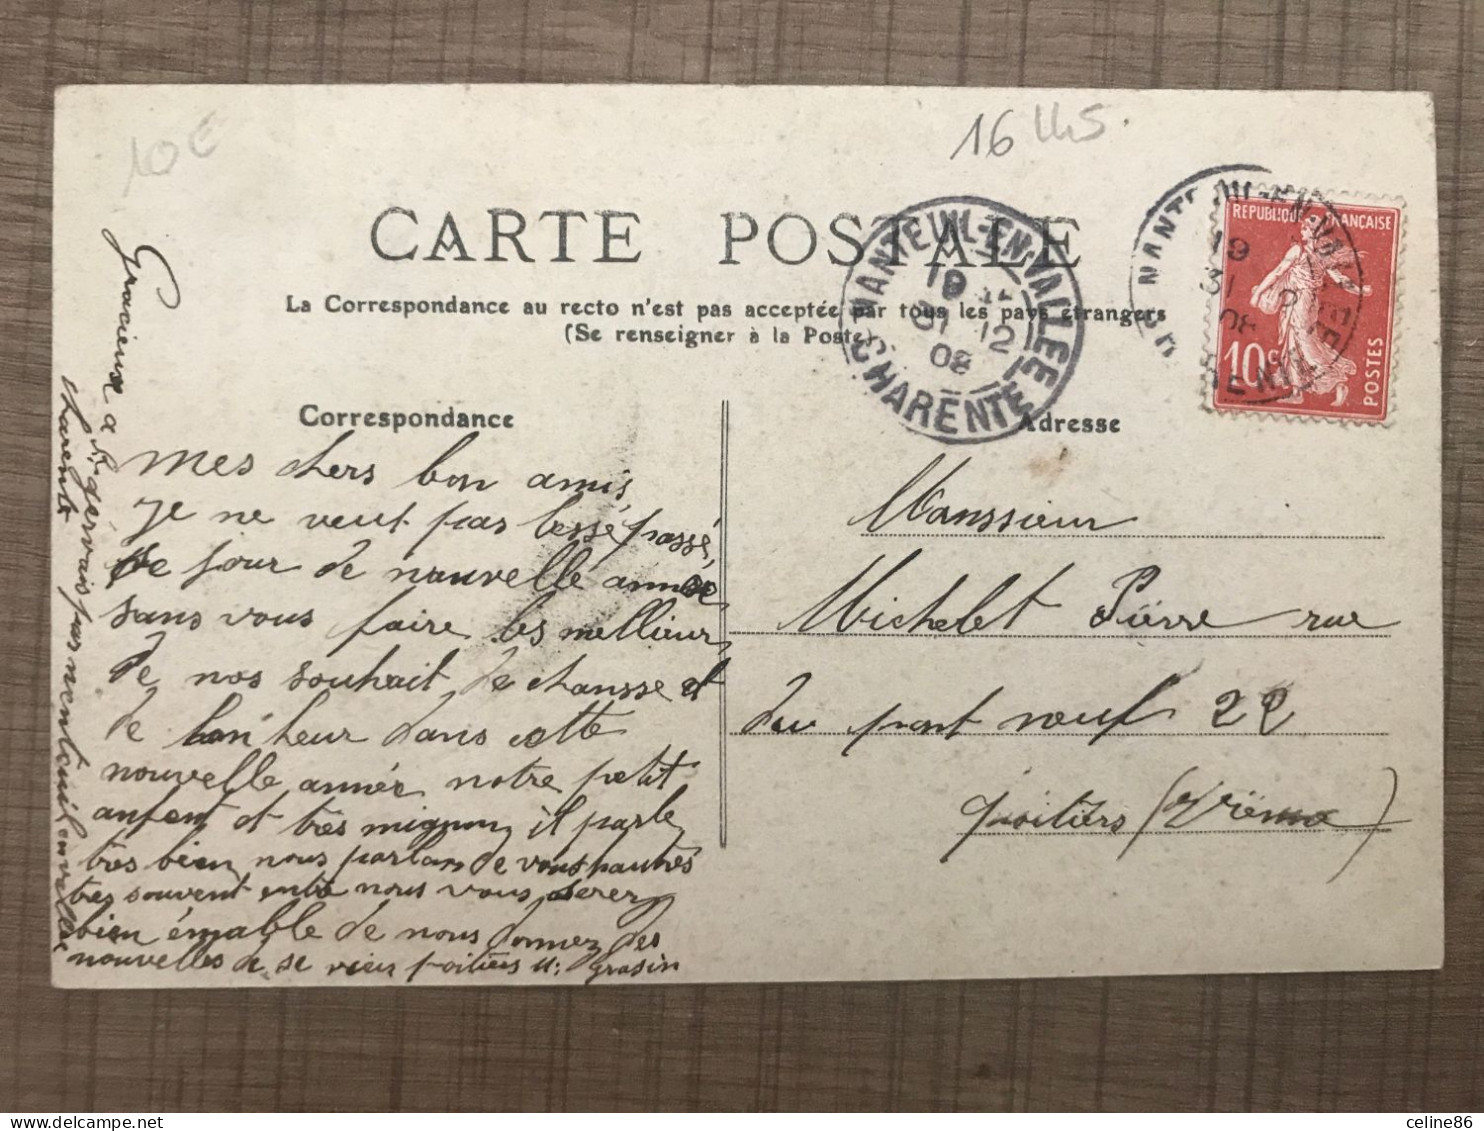 10€
16 115.
CARTE POSTALE
La Correspondance au recto n'est pas acceptée par tous les pays étrangers
(Se renseigner à la Poste)
NANTEUIL-EN-VALLÉE
19
31 12
08
CHARENTE
RÉPUBLIQUE FRANÇAISE
10c
POSTES
Correspondance
mes chers bon amis
je ne veut pas lessé passé
le jour de nouvelle année
sans vous faire les mellieur
de nos souhait de chansse et
de bonheur dans cette
nouvelle année notre petit
anfant et très mignon il parle
très bien nous parlan de vous hautrés
très souvent entre nous vous serez
bien émable de nous donnez des
nouvelles de se vieu poitiers
Gracieuse a St gervais par nenteuil en vallee
charente
Adresse
Manssieur
Michelet Pierre rue
du pont neuf 22
poitiers (Vienne)
celine86